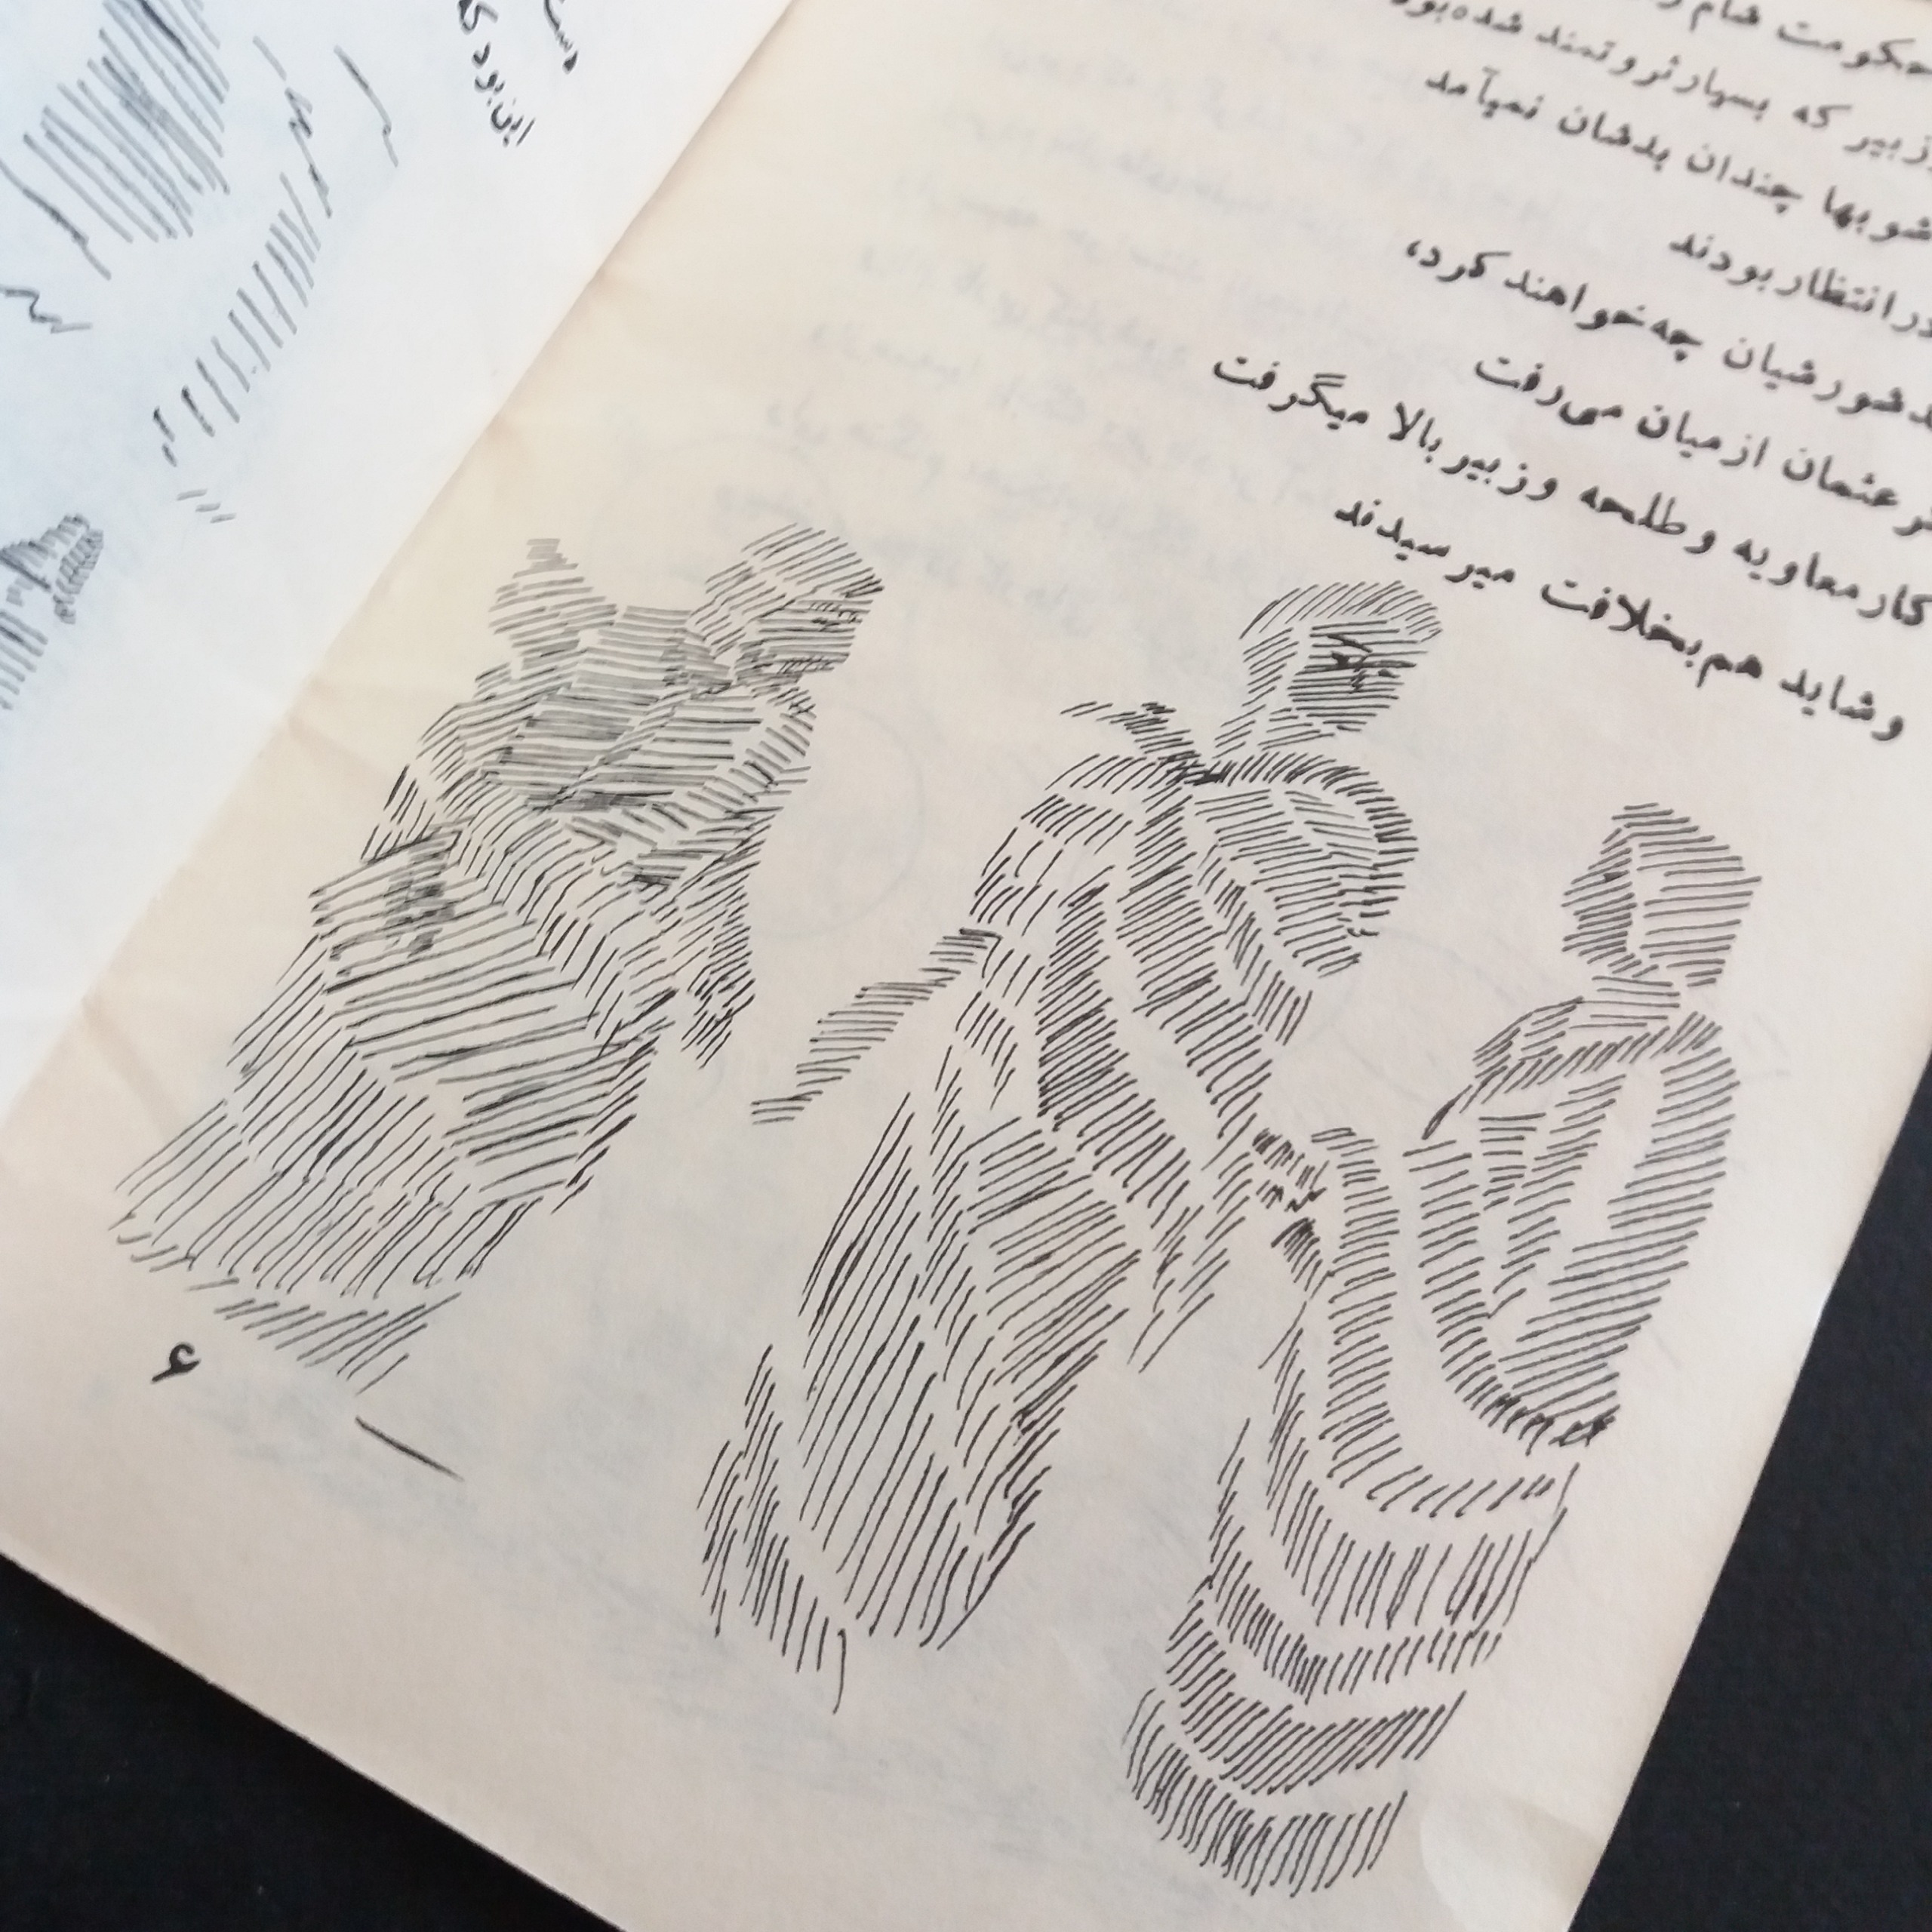 حکومت شام
زبیر که بسیار ثروتمند شده بود
شوبها چندان بدشان نمیآمد
در انتظار بودند
شورشیان چه خواهند کرد،
عثمان از میان می‌رفت
کار معاویه و طلحه و زبیر بالا میگرفت
و شاید هم بخلافت میرسیدند
۶
دست
این بود